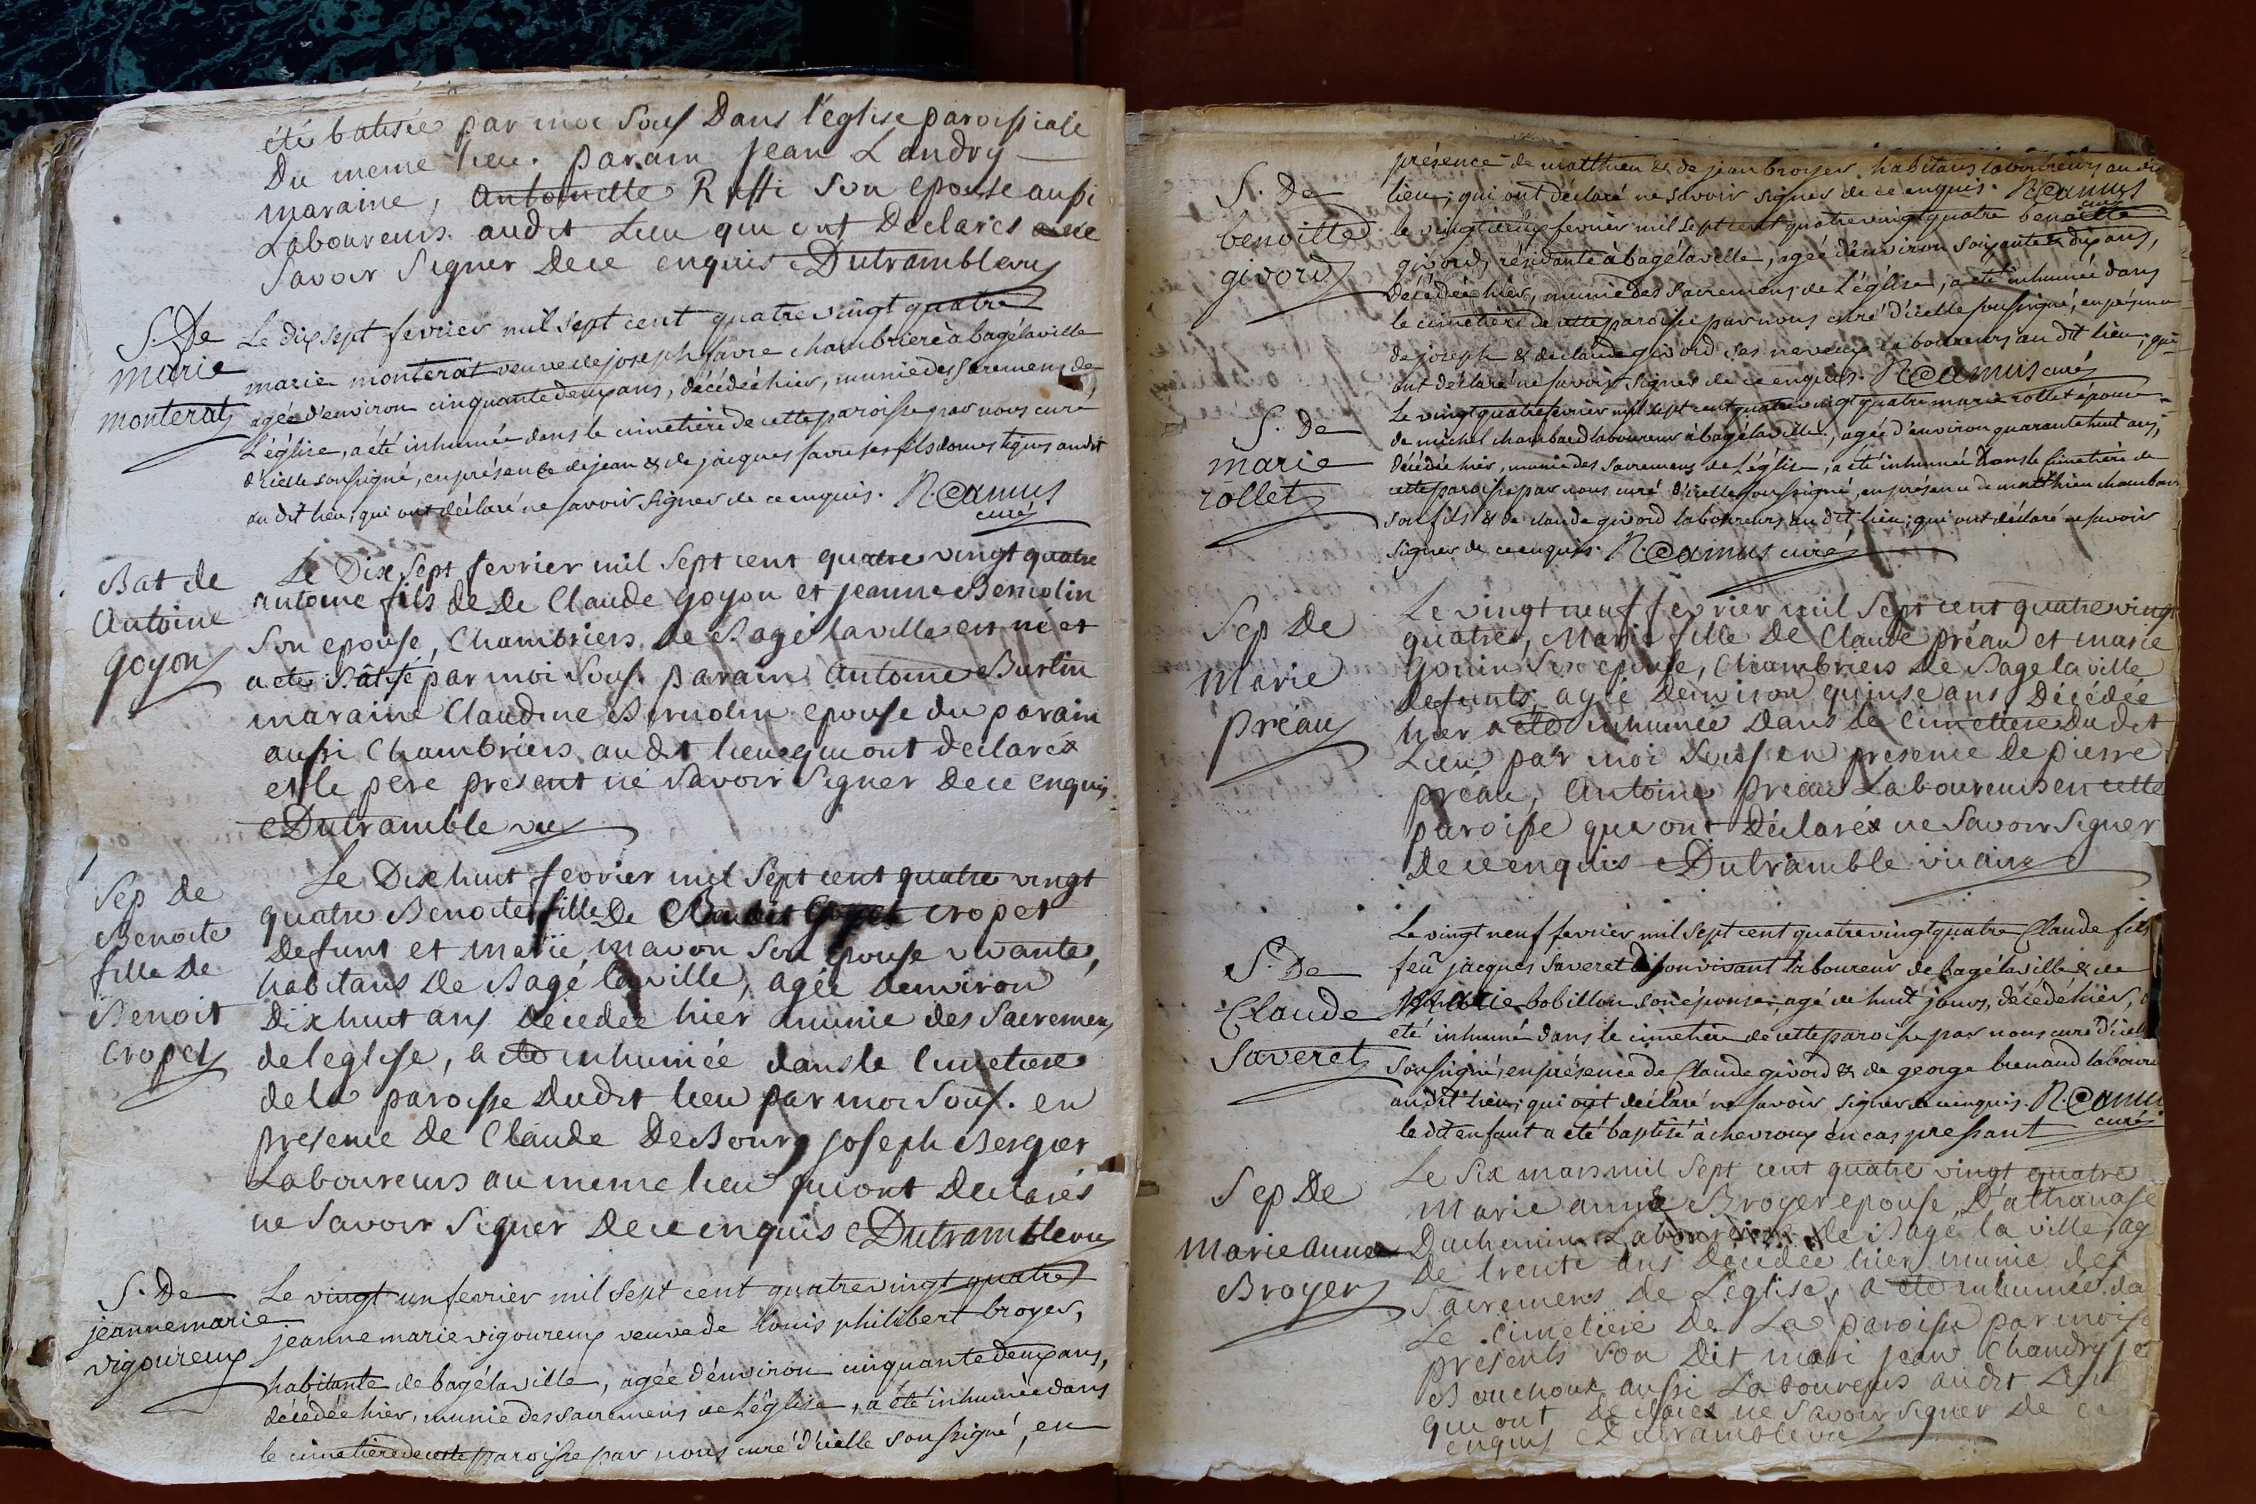 été batisée par moi Sous Dans l'église paroissiale
Du meme lieu. parain jean Landry
maraine, antoinette son epouse aussi
Laboureurs audit Lieu qui ont Declares ne
savoir Signer Dece enquis Dutramble vic
S. De
marie
monterat
Le dix sept fevrier mil sept cent quatre vingt quatre
marie monterat veuve de joseph favre chambriere à bagé la ville
agée d'environ cinquante deux ans, décédée hier, munie des sacremens de
L'église, a été inhumée dans le cimetière de cette paroisse par nous curé
d'icelle soussigné, en présence de jean & de jacques favre ses fils domestiques audit
au dit lieu, qui ont déclaré ne savoir signer de ce enquis. N. Camus
curé
Bat de
Antoine
goyon
Le Dix Sept fevrier mil Sept cent quatre vingt quatre
antoine fils de De Claude goyon et jeanne Bernolin
Son epouse, Chambriers de Bagé la ville est né et
a eté Bâtisé par moi Sous. parain antoine Burtin
maraine Claudine Bernolin epouse du parain
aussi Chambriers audit lieu qui ont declarés
et le pere present ne savoir Signer De ce enquis
Dutramble vic
Sep de
Benoite
fille de
Benoit
Cropet
Le Dix huit fevrier mil Sept cent quatre vingt
quatre Benoite fille De cropet
Defunt et marie mavon son epouse vivante,
habitans De Bagé la ville, agée denviron
Dix huit ans Decedée hier munie des Sacremens
de leglise, a eté inhumée dans le Cimetiere
de la paroisse Dudit lieu par moi Sous. en
presence de Claude DeBourg joseph Berger
Laboureurs au meme lieu qui ont Declarés
ne Savoir Signer De ce enquis Dutramble vic
S. De
jeanne marie
vigoureux
Le vingt un fevrier mil sept cent quatre vingt quatre
jeanne marie vigoureux veuve de louis philibert broyer,
habitante de bagé la ville, agée d'environ cinquante deux ans,
décédée hier, munie des sacremens de l'église, a été inhumée dans
le cimetière de cette paroisse par nous curé d'icelle soussigné, en
présence de matthieu & de jean broyer habitans laboureurs audit
lieu; qui ont déclaré ne savoir signer de ce enquis. N. Camus
curé
S. De
benoitte
givord
le vingt deux fevrier mil sept cent quatre vingt quatre benoitte
givord, résidante à bagé la ville, agée d'environ soixante & dix ans,
Décédée hier, munie des sacremens de L'église, a été inhumée dans
le cimetière de cette paroisse par nous curé d'icelle soussigné, en présence
de joseph & de claude givord ses neveux laboureurs au dit lieu; qui
ont déclaré ne savoir signer de ce enquis. N. Camus curé
S. De
marie
rollet
Le vingt quatre fevrier mil sept cent quatre vingt quatre marie rollet épouse
de michel chambard laboureur à bagé la ville, agée d'environ quarante huit ans,
décédée hier, munie des sacremens de L'église, a été inhumée dans le cimetière de
cette paroisse par nous curé d'icelle soussigné, en présence de matthieu chambard
son fils & de claude givord laboureurs au dit lieu; qui ont déclaré ne savoir
signer de ce enquis. N. Camus curé
Sep De
Marie
préau
Le vingt neuf fevrier mil Sept cent quatre vingt
quatre, Marie fille De Claude préau et marie
gonin Son epouse, Chambriers De Bage la ville
defunts, agée denviron quinse ans Décédée
hier a eté inhumée Dans le Cimetiere Dudit
Lieu par moi Sous en presence De pierre
préau, antoine préau Laboureurs en cette
paroisse qui ont Déclarés ne Savoir Signer
de ce enquis Dutramble vicaire
S. De
Claude
Saveret
Le vingt neuf fevrier mil sept cent quatre vingt quatre Claude fils
feu jacques Saveret de son vivant laboureur de bagé la ville & de
Marie bobillon son épouse, agé de huit jours, décédé hier, a
été inhumé dans le cimetière de cette paroisse par nous curé d'icelle
Soussigné, en présence de Claude givord & de george brenaud laboureurs
au dit lieu; qui ont déclaré ne savoir signer de ce enquis. N. Camus
le dit enfant a été baptisé à chevroux en cas pressant curé
Sep De
Marie anne
Broyer
Le Six mars mil Sept cent quatre vingt quatre
Marie anne Broyer epouse D'athanase
Duchemin Laboureur de Bagé la ville, ag
De trente ans Decedée hier munie des
Sacremens De L'eglise, a eté inhumée da
Le Cimetiere De La paroisse par moi So
presents son Dit mari jean Chandry je
Bouchoux aussi Laboureurs audit Lieu
qui ont Declarés ne Savoir signer De ce
enquis Dutramble vic